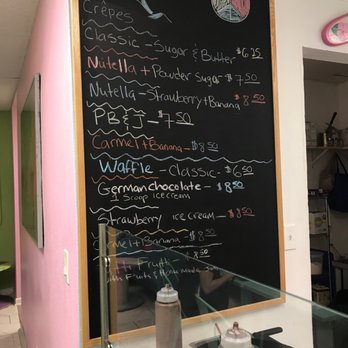 Crêpes
Classic - Sugar & Butter $6.25
Nutella + Powder Sugar $7.50
Nutella - Strawberry + Banana $8.50
PB & J - $7.50
Carmel + Banana - $8.50
Waffle - Classic - $6.50
German chocolate - $8.50
1 Scoop ice cream
Strawberry ice cream - $8.50
Carmel + Banana - $8.50
Tutti Frutti - $8.50
with Fruits &